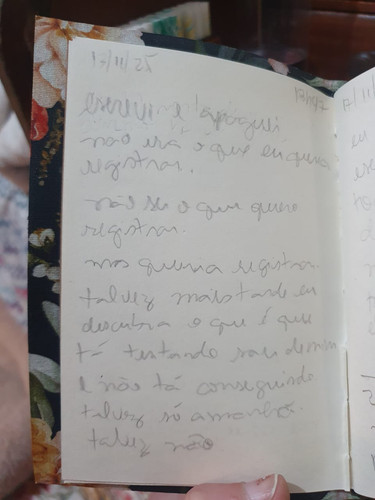 17/11/25
13h97 17/11
escrevi e apaguei
não era o que eu queria
registrar.
não sei o que queria
registrar.
mas queria registrar.
talvez mais tarde eu
descubra o que é que
tá tentando sair de mim
e não tá conseguindo
talvez só amanhã.
talvez não
eu